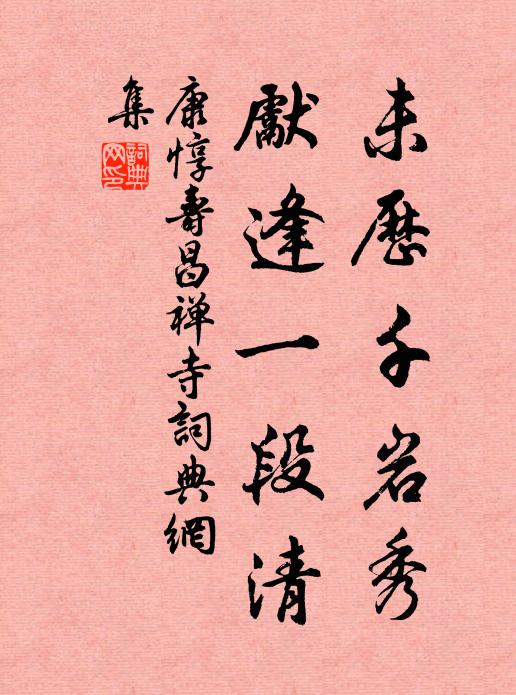 未歷千岩秀
獻逢一段清
康惇壽昌禅寺詞典網
集
詞典
网印